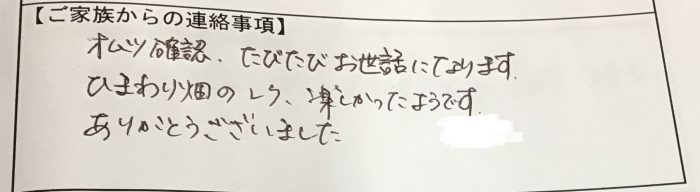 【ご家族からの連絡事項】
オムツ確認、たびたびお世話になります.
ひまわり畑のレク、楽しかったようです.
ありがとうございました